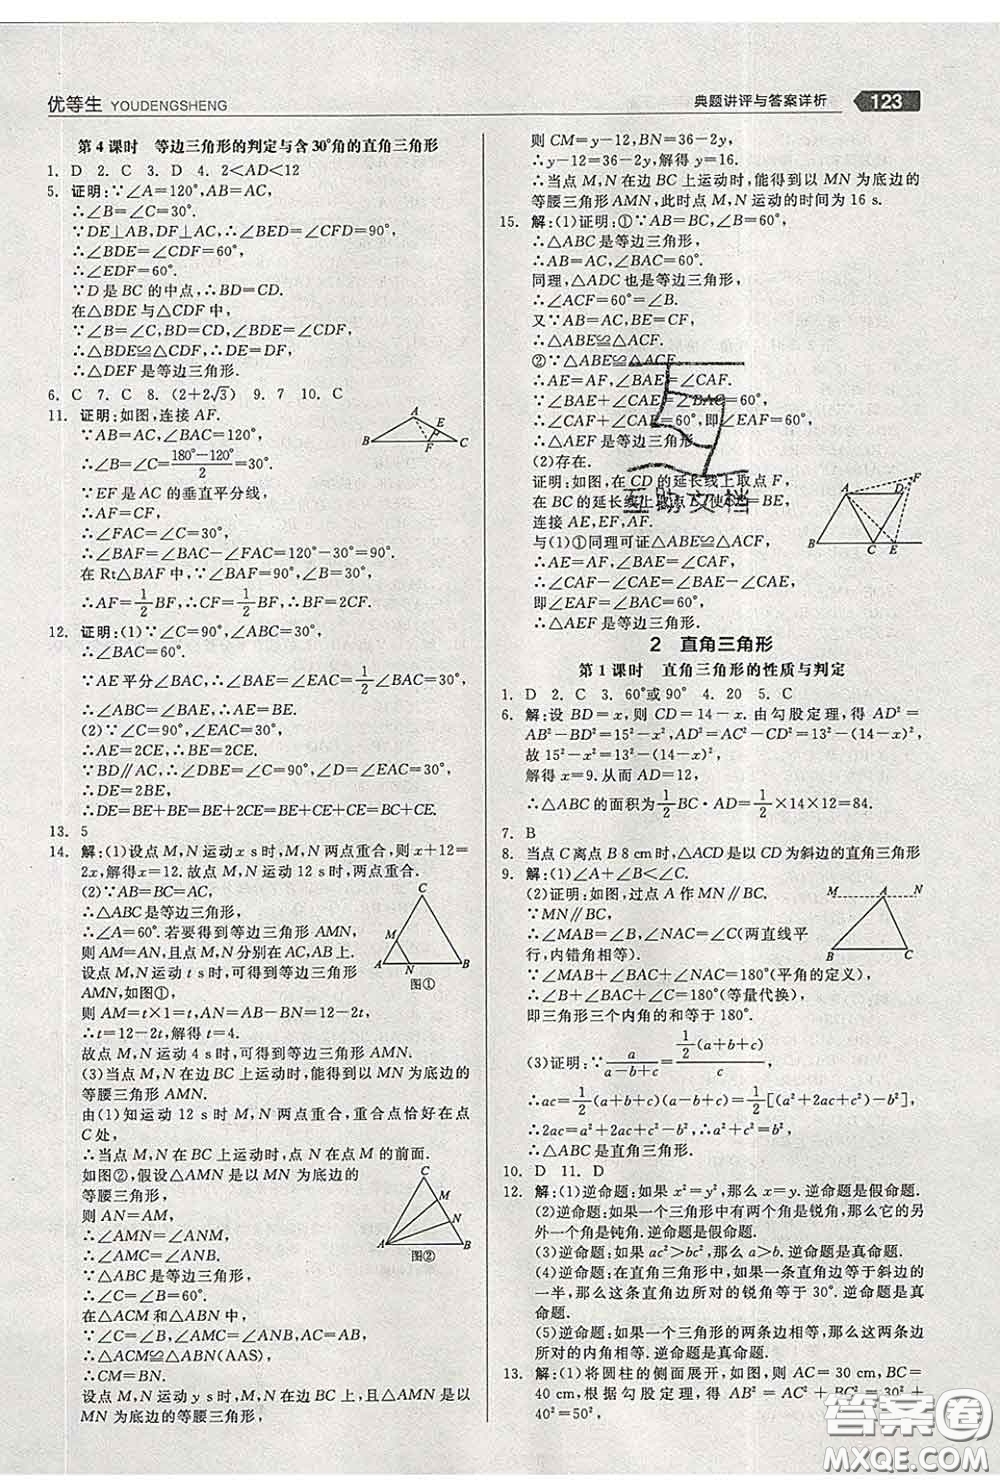 优等生 YOUDENGSHENG
典题讲评与答案详析 123
第4课时 等边三角形的判定与含30°角的直角三角形
1. D 2. C 3. D 4. 2<AD<12
5. 证明:∵∠A=120°,AB=AC,
∴∠B=∠C=30°.
∵DE⊥AB,DF⊥AC,∴∠BED=∠CFD=90°,
∴∠BDE=∠CDF=60°,
∴∠EDF=60°.
∵D是BC的中点,∴BD=CD.
在△BDE与△CDF中,
∵∠B=∠C,BD=CD,∠BDE=∠CDF,
∴△BDE≌△CDF,∴DE=DF.
∴△DEF是等边三角形.
6. C 7. C 8. (2+2√3) 9. 7 10. C
11. 证明:如图,连接AF.
∵AB=AC,∠BAC=120°,
∴∠B=∠C=(180°-120°)/2=30°.
∵EF是AC的垂直平分线,
∴AF=CF.
∴∠FAC=∠C=30°.
∴∠BAF=∠BAC-∠FAC=120°-30°=90°.
在Rt△BAF中,∵∠BAF=90°,∠B=30°,
∴AF=1/2BF,∴CF=1/2BF,∴BF=2CF.
A
E
B F C
12. 证明:(1)∵∠C=90°,∠ABC=30°,
∴∠BAC=60°.
∵AE平分∠BAC,∴∠BAE=∠CAE=30°,
∴∠ABC=∠BAE,∴AE=BE.
(2)∵∠C=90°,∠CAE=30°,
∴AE=2CE,∴BE=2CE.
∵BD∥AC,∴∠DBE=∠C=90°,∠D=∠CAE=30°,
∴DE=2BE,
∴DE=BE+BE=BE+2CE=BE+CE+CE=BC+CE.
13. 5
14. 解:(1)设点M,N运动x s时,M,N两点重合,则x+12=
2x,解得x=12.故点M,N运动12 s时,M,N两点重合.
(2)∵AB=BC=AC,
∴△ABC是等边三角形,
∴∠A=60°.若要得到等边三角形AMN,
则AM=AN,且点M,N分别在AC,AB上.
设点M,N运动t s时,可得到等边三角形
AMN,如图①,
则AM=t×1=t,AN=AB-BN=12-2t,
∴t=12-2t,解得t=4.
故点M,N运动4 s时,可得到等边三角形AMN.
C
M
A N B
图①
(3)当点M,N在边BC上运动时,可以得到以MN为底边的
等腰三角形AMN.
由(1)知运动12 s时,M,N两点重合,重合点恰好在点
C处,
∴当点M,N在边BC上运动时,点N在点M的前面.
如图②,假设△AMN是以MN为底边的
等腰三角形,
则AN=AM,
∴∠AMN=∠ANM,
∴∠AMC=∠ANB.
∵△ABC是等边三角形,
∴∠C=∠B=60°.
在△ACM和△ABN中,
∵∠C=∠B,∠AMC=∠ANB,AC=AB,
∴△ACM≌△ABN(AAS),
∴CM=BN.
C
M
N
A B
图②
设点M,N运动y s时,点M,N在BC上,且△AMN是以
MN为底边的等腰三角形,
则CM=y-12,BN=36-2y,
∴y-12=36-2y,解得y=16.
∴当点M,N在边BC上运动时,能得到以MN为底边的
等腰三角形AMN,此时点M,N运动的时间为16 s.
15. 解:(1)证明:①∵AB=BC,∠B=60°,
∴△ABC是等边三角形,
同理,△ADC也是等边三角形,
∴∠ACF=60°=∠B.
又∵AB=AC,BE=CF,
∴△ABE≌△ACF.
②∵△ABE≌△ACF,
∴AE=AF,∠BAE=∠CAF.
∵∠BAE+∠CAE=∠BAC=60°,
∴∠CAF+∠CAE=60°,即∠EAF=60°,
∴△AEF是等边三角形.
(2)存在.
证明:如图,在CD的延长线上取点F,
在BC的延长线上取点E,使CF=BE,
连接AE,EF,AF.
与(1)①同理可证△ABE≌△ACF,
∴AE=AF,∠BAE=∠CAF,
∴∠BAE-∠CAE=∠CAF-∠CAE,
即∠EAF=∠BAC=60°,
∴△AEF是等边三角形.
F
A D
B C E
互助文档
2 直角三角形
第1课时 直角三角形的性质与判定
1. D 2. C 3. 60°或90° 4. 20 5. C
6. 解:设BD=x,则CD=14-x.由勾股定理,得AD²=
AB²-BD²=15²-x²,AD²=AC²-CD²=13²-(14-x)²,
故15²-x²=13²-(14-x)²,
解得x=9.从而AD=12,
∴△ABC的面积为1/2BC·AD=1/2×14×12=84.
7. B
8. 当点C离点B 8 cm时,△ACD是以CD为斜边的直角三角形
9. 解:(1)∠A+∠B<∠C.
(2)证明:如图,过点A作MN∥BC.
∵MN∥BC,
∴∠MAB=∠B,∠NAC=∠C(两直线平
行,内错角相等).
∵∠MAB+∠BAC+∠NAC=180°(平角的定义),
∴∠B+∠BAC+∠C=180°(等量代换),
即三角形三个内角的和等于180°.
M A N
B C
(3)证明:∵a/(a-b+c)=1/2(a+b+c)/c,
∴ac=1/2(a+b+c)(a-b+c)=1/2[(a²+2ac+c²)-b²],
∴2ac=a²+2ac+c²-b²,∴a²+c²=b²,
∴△ABC是直角三角形.
10. D 11. D
12. 解:(1)逆命题:如果x²=y²,那么x=y.逆命题是假命题.
(2)逆命题:如果一个三角形中有两个角是锐角,那么它的另
外一个角是钝角.逆命题是假命题.
(3)逆命题:如果ac²>bc²,那么a>b.逆命题是真命题.
(4)逆命题:在直角三角形中,如果一条直角边等于斜边的
一半,那么这条直角边所对的锐角等于30°.逆命题是真
命题.
(5)逆命题:如果一个三角形的两条边相等,那么这两条边
所对的内角相等.逆命题是真命题.
13. 解:(1)将圆柱的侧面展开,如图,则AC=30 cm,BC=
40 cm,根据勾股定理,得AB²=AC²+BC²=30²+
40²=50²,
答案圈
MXQE.COM